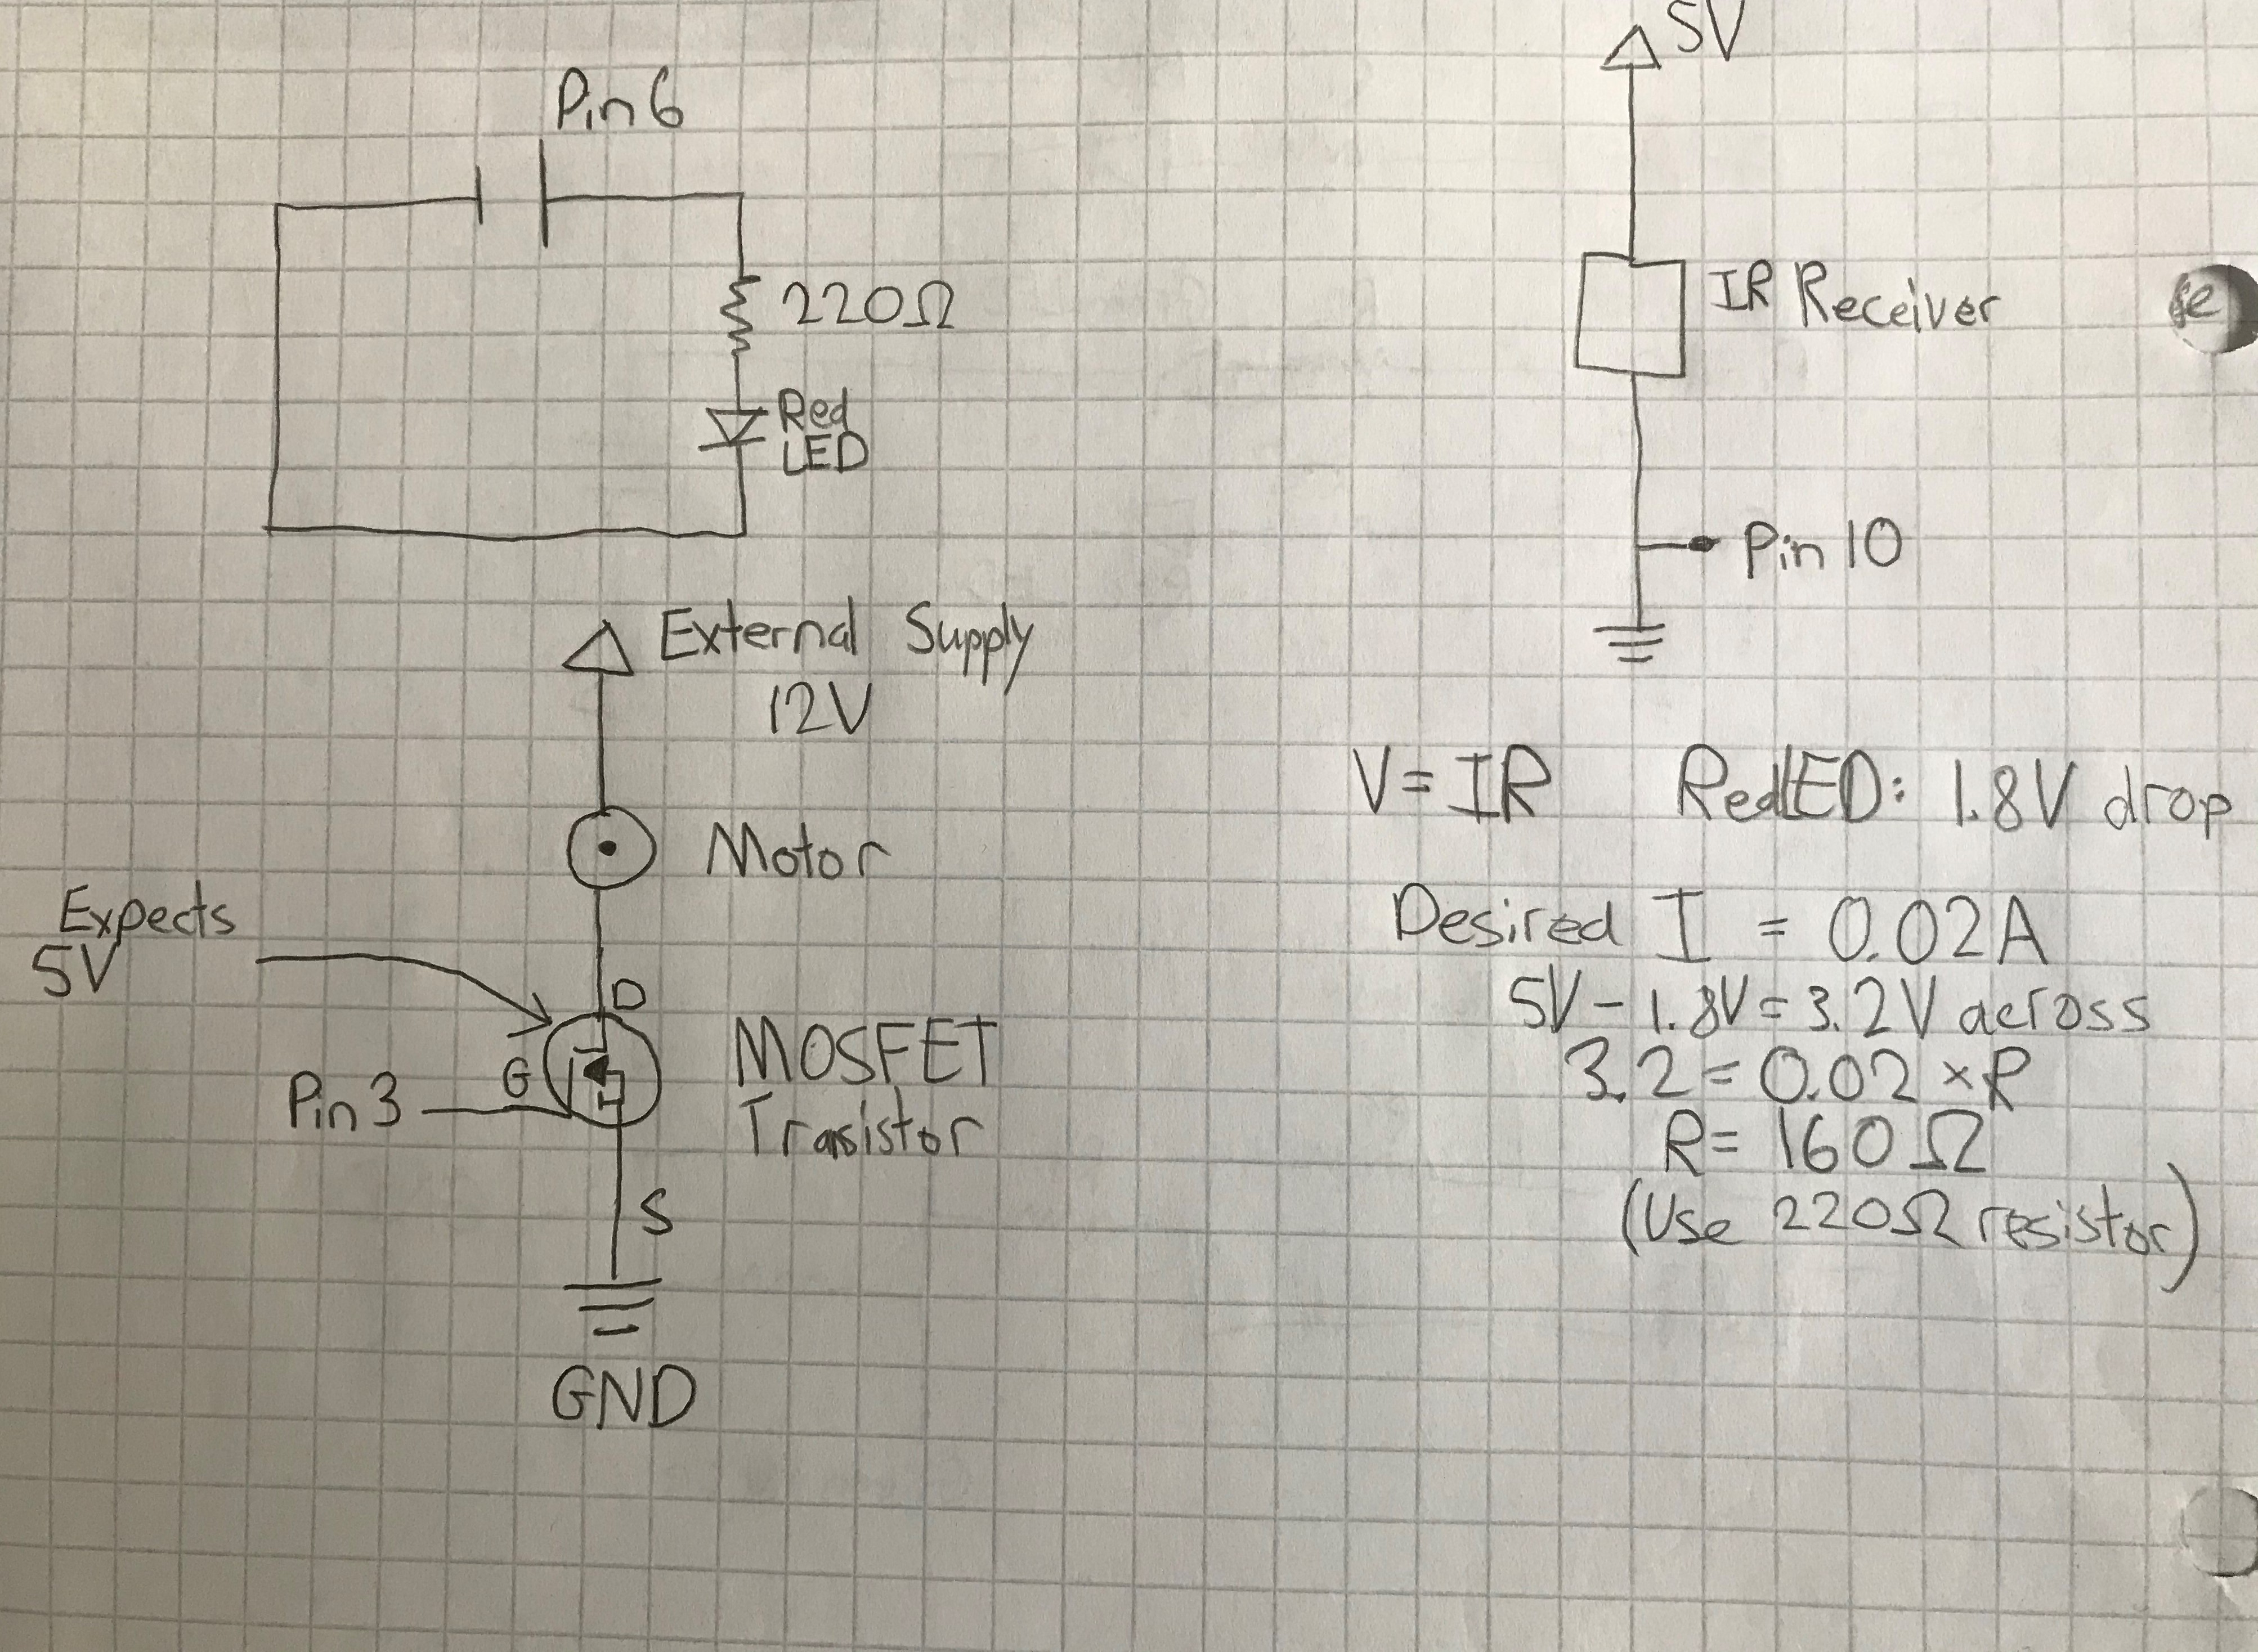 Pin 6
220Ω
Red
LED
External Supply
12V
Motor
Expects
5V
D
G
Pin 3
MOSFET
Trasistor
S
GND
5V
IR Receiver
Pin 10
V = IR RedLED: 1.8V drop
Desired I = 0.02A
5V - 1.8V = 3.2V across
3.2 = 0.02 × R
R = 160Ω
(Use 220Ω resistor)